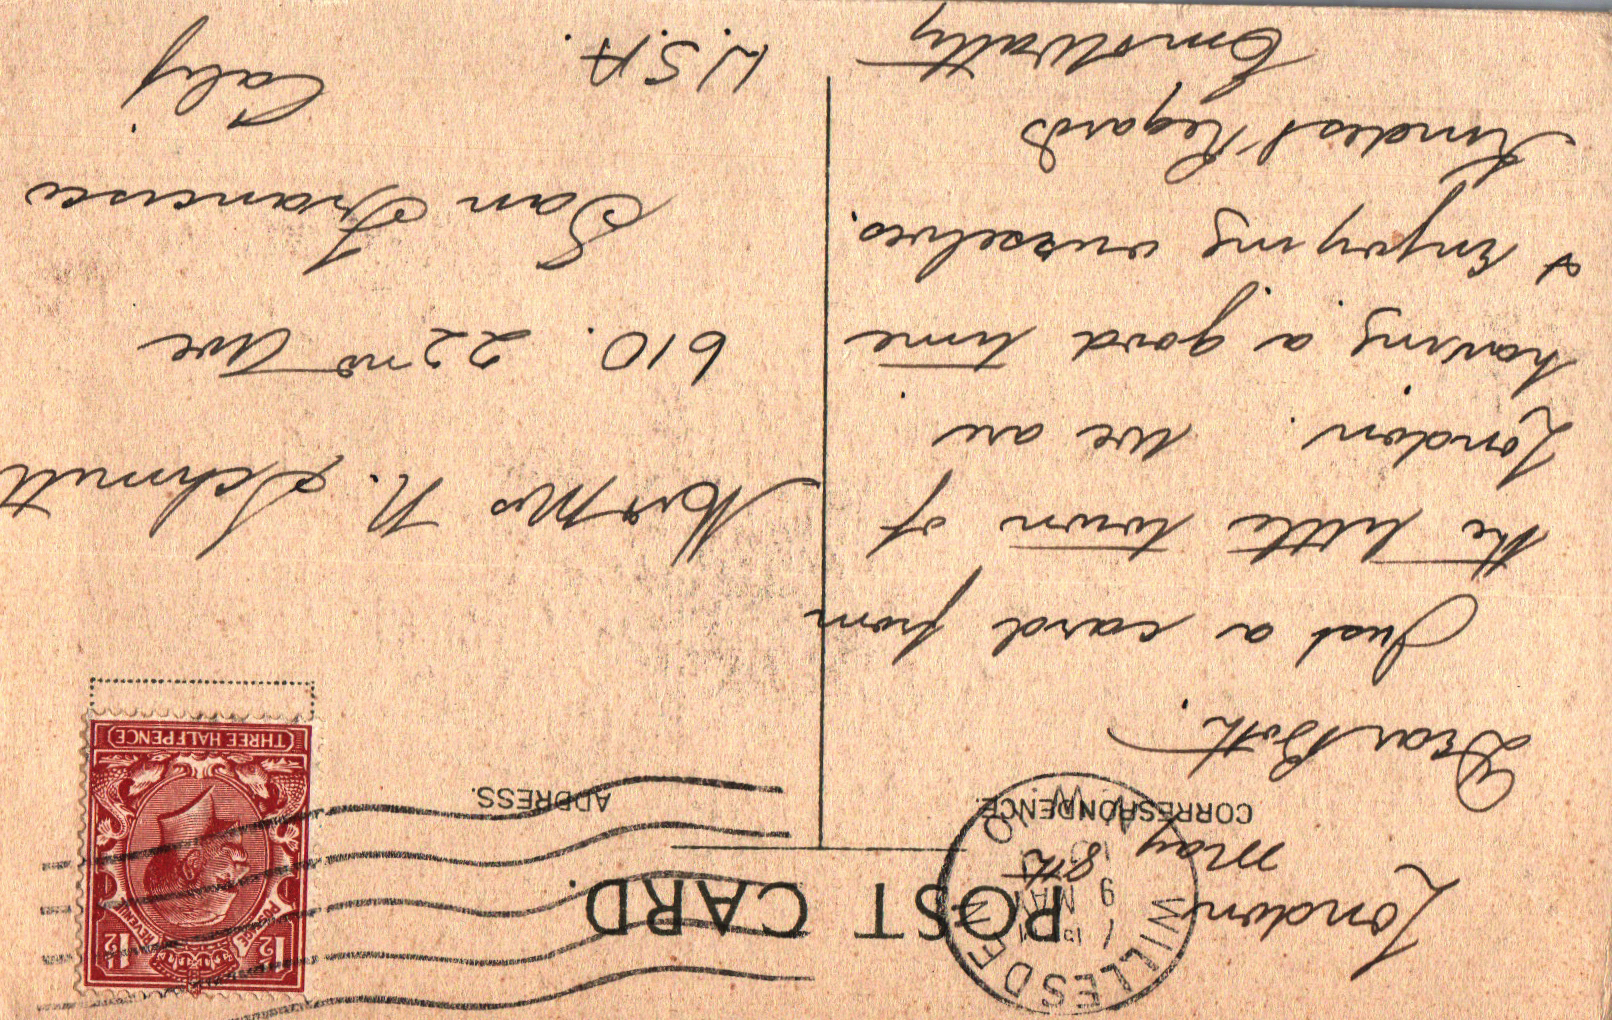 POST CARD.
CORRESPONDENCE.
ADDRESS.
WILLESDEN
N.W.10
9 MAY
POSTAGE REVENUE
1½ 1½
THREE HALFPENCE
London
May 8th
Dear Both.
Just a card from
the little town of
London. We are
having a good time
& Enjoying ourselves.
Kindest Regards
Em & Wally
Mr & Mrs N. Schmitt
610. 22nd Ave
San Francisco
Calif
U.S.A.